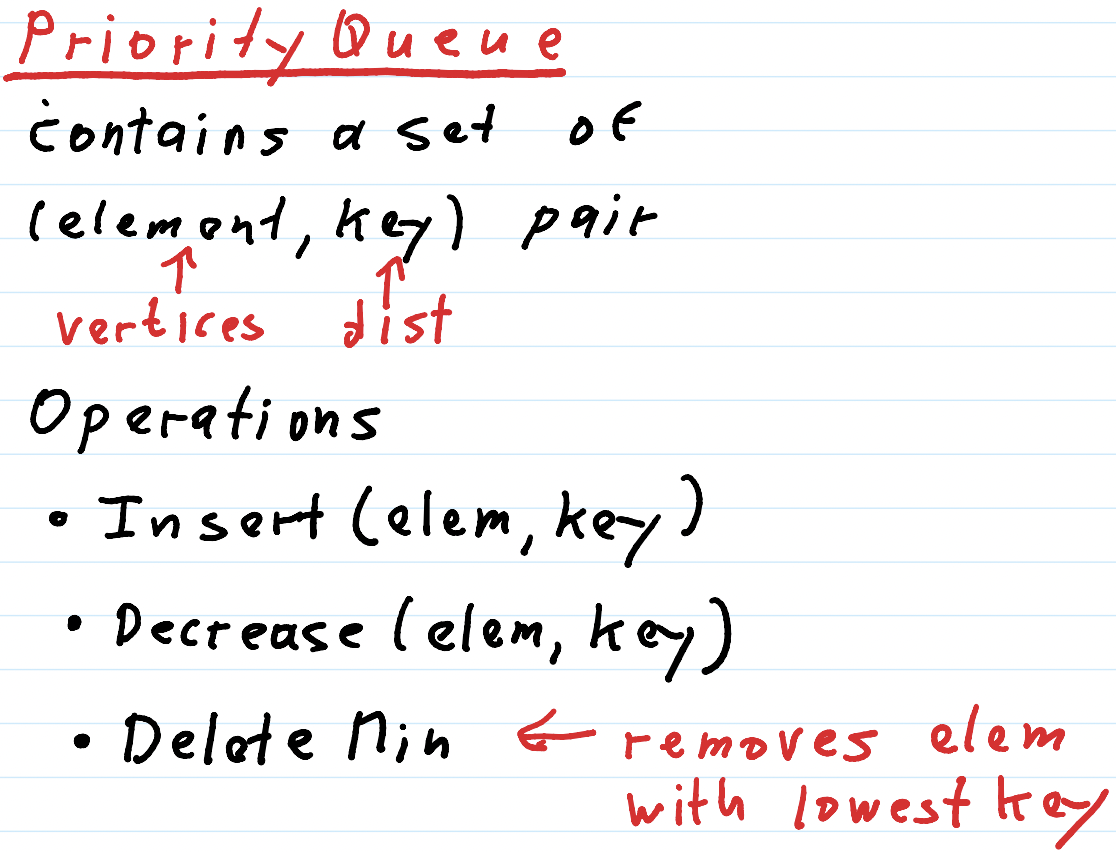 Priority Queue
contains a set of
(element, key) pair
vertices dist
Operations
• Insert (elem, key)
• Decrease (elem, key)
• Delete Min ← removes elem
with lowest key